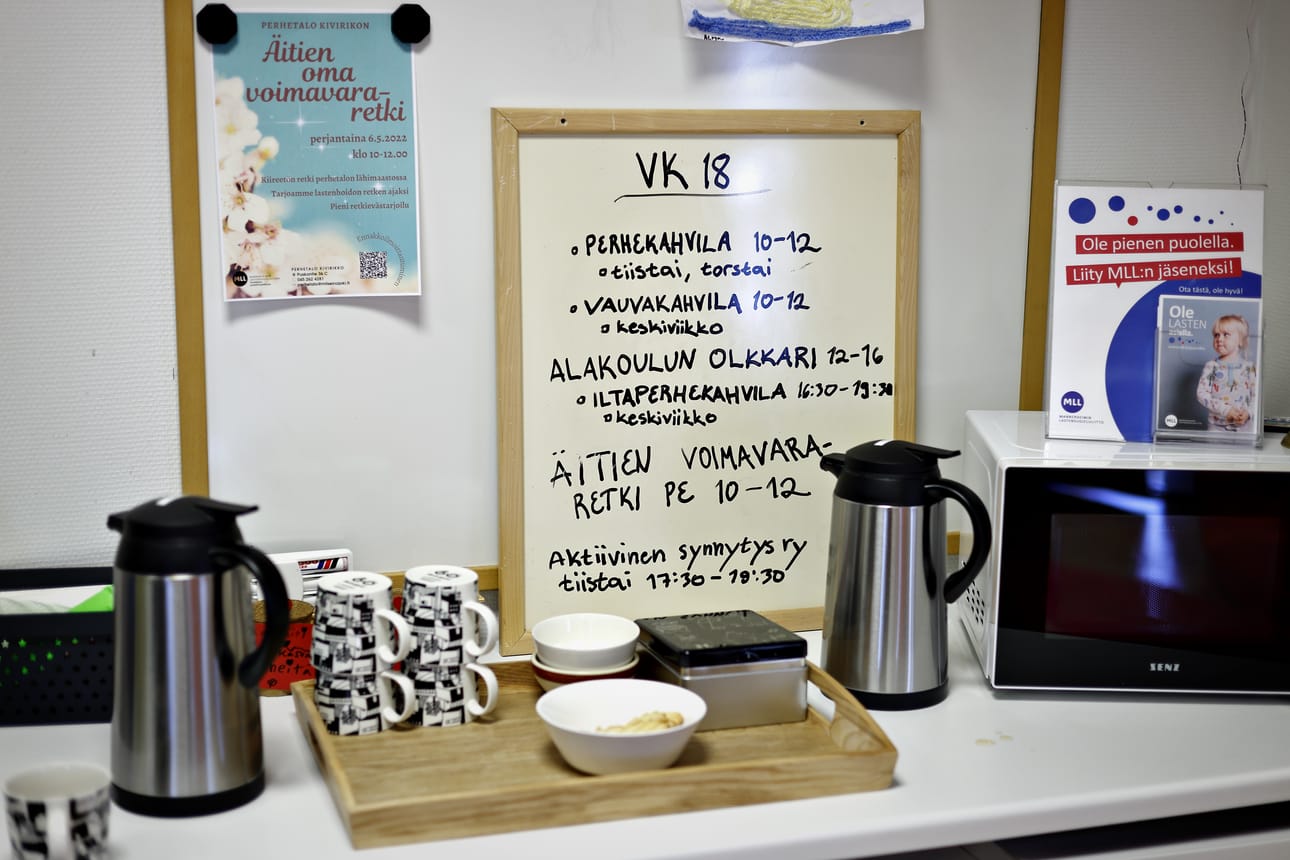 PERHETALO KIVIRIKON
Äitien
oma
voimavara-
retki
perjantaina 6.5.2022
klo 10-12.00
Kiireetön retki perhetalon lähimaastossa
Tarjoamme lastenhoidon retken ajaksi
Pieni retkievästarjoilu
PERHETALO KIVIRIKKO
MLL
VK 18
PERHEKAHVILA 10-12
tiistai, torstai
VAUVAKAHVILA 10-12
keskiviikko
ALAKOULUN OLKKARI 12-16
ILTAPERHEKAHVILA 16:30-19:30
keskiviikko
ÄITIEN VOIMAVARA-
RETKI PE 10-12
Aktiivinen synnytys ry
tiistai 17:30-19:30
Ole pienen puolella.
Liity MLL:n jäseneksi!
Ota tästä, ole hyvä!
Ole
LASTEN
MLL
MANNERHEIMIN
LASTENSUOJELULIITTO
MLL
SENZ